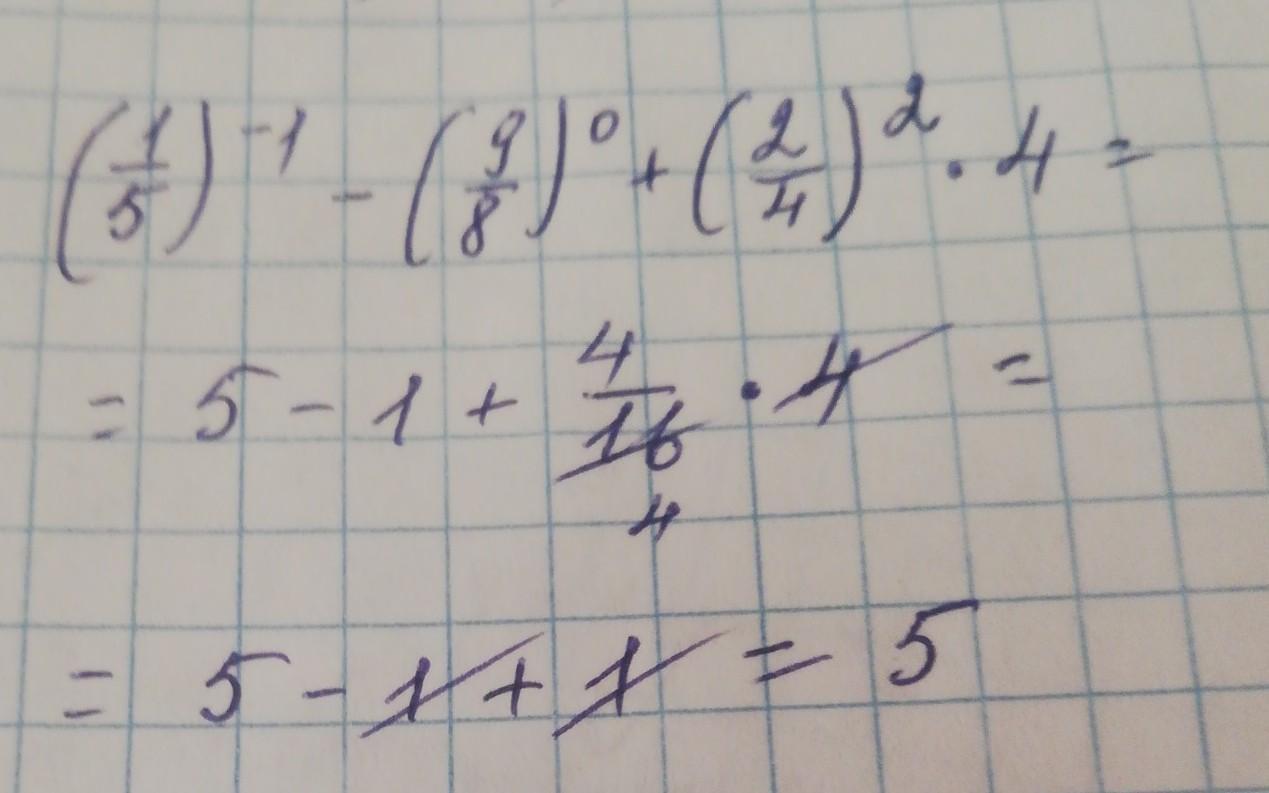 (1/5)^-1 - (9/8)^0 + (2/4)^2 · 4 =
= 5 - 1 + 4/16 · 4 =
4
= 5 - 1 + 1 = 5